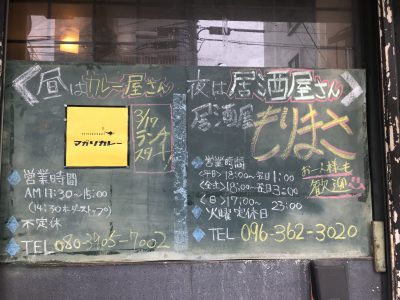 昼はカレー屋さん
3/17
ランチ
スタート
マガリカレー
営業時間
AM11:30~15:00
(14:30オーダーストップ)
不定休
TEL 080-3905-7002
夜は居酒屋さん
居酒屋
もりまさ
お一人様も
歓迎
営業時間
(平日)18:00~翌1:00
(金土)18:00~翌3:00
(日)17:00~23:00
火曜定休日
TEL 096-362-3020